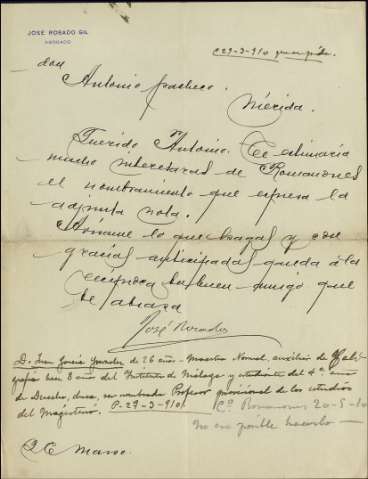 JOSÉ ROSADO GIL
ABOGADO
C 29-3-910
don
Antonio pacheco.
Mérida.
Querido Antonio. Te estimaria
mucho interesaras de Romanones
el nombramiento que expresa la
adjunta nota.
lo que hagas y con
gracias anticipadas queda á la
recíproca tu buen amigo que
te abraza
José Rosado
D. Juan García de 26 años - Maestro Normal, auxiliar de Cali-
grafía hace 8 años del Instituto de Málaga y estudiante del 4º año
de Derecho, desea ser nombrado Profesor provisional de los estudios
del Magisterio. P-29-3-910. Cª Romanones 20-5-10
No es posible hacerlo
26 Marzo